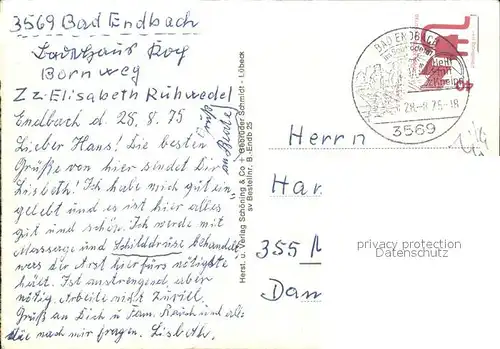 3569 Bad Endbach
Bornweg
Z z. Elisabeth Rühwedel
Endbach d. 28.8.75
Lieber Hans! Die besten
Grüße von hier sendet Dir
Lisbeth! Ich habe mich gut ein-
gelebt und es ist hier alles
gut und schön. Ich werde mit
Massage und Schilddrüse behandelt
was der Arzt hier fürs nötigste
hält. Ist anstrengend aber
nötig. Arbeite nicht zuviel.
Gruß an Dich u Fam. Reich und alle
die nach mir fragen. Lisbeth.
Gruß
an
Herst. u. Verlag Schöning & Co + Gebrüder Schmidt - Lübeck
sv Bestellnr. B.-Endb 25
BAD ENDBACH
Kneipp
28.-8.75-18
3569
40
Herrn
Har
355
Dan
privacy protection
Datenschutz